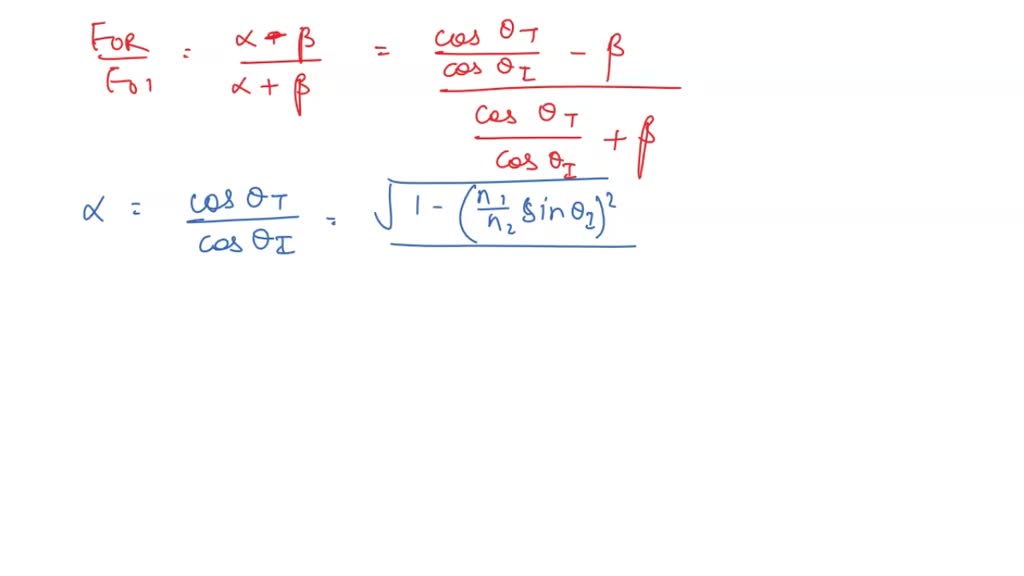 E₀R / E₀I = (α - β) / (α + β) = (cos θ_T / cos θ_I - β) / (cos θ_T / cos θ_I + β)
α = cos θ_T / cos θ_I = √(1 - (n₁/n₂ sin θ_I)²)